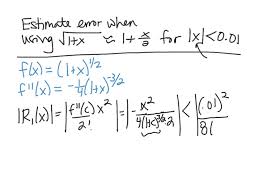 Estimate error when
using √(1+x) ≈ 1 + x/2 for |x| < 0.01
f(x) = (1+x)^(1/2)
f''(x) = -1/4(1+x)^(-3/2)
|R₁(x)| = |f''(c)x²/2!| = |-x²/4(1+c)^(3/2)·2| < |(.01)²/8(